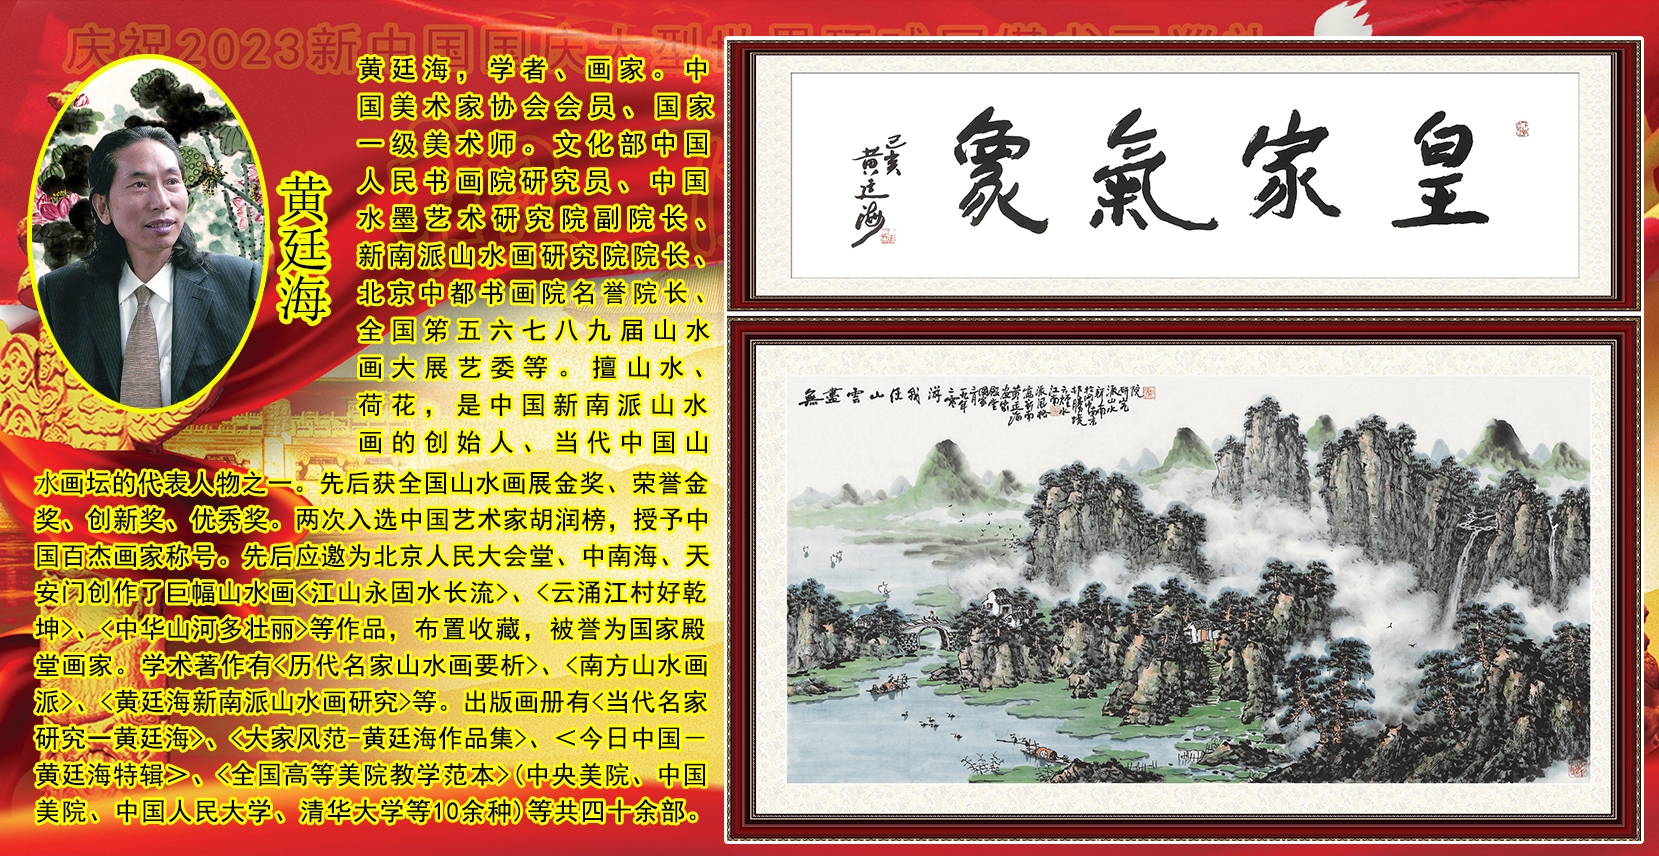 庆祝2023新中国国庆大型
黄廷海，学者、画家。中
国美术家协会会员、国家
一级美术师。文化部中国
人民书画院研究员、中国
水墨艺术研究院副院长、
新南派山水画研究院院长、
北京中都书画院名誉院长、
全国第五六七八九届山水
画大展艺委等。擅山水、
荷花，是中国新南派山水
画的创始人、当代中国山
水画坛的代表人物之一。先后获全国山水画展金奖、荣誉金
奖、创新奖、优秀奖。两次入选中国艺术家胡润榜，授予中
国百杰画家称号。先后应邀为北京人民大会堂、中南海、天
安门创作了巨幅山水画<江山永固水长流>、<云涌江村好乾
坤>、<中华山河多壮丽>等作品，布置收藏，被誉为国家殿
堂画家。学术著作有<历代名家山水画要析>、<南方山水画
派>、<黄廷海新南派山水画研究>等。出版画册有<当代名家
研究一黄廷海>、<大家风范-黄廷海作品集>、＜今日中国－
黄廷海特辑＞、<全国高等美院教学范本>(中央美院、中国
美院、中国人民大学、清华大学等10余种)等共四十余部。
黄廷海
皇家氣象
己亥
黄廷海
無盡雲山任我游